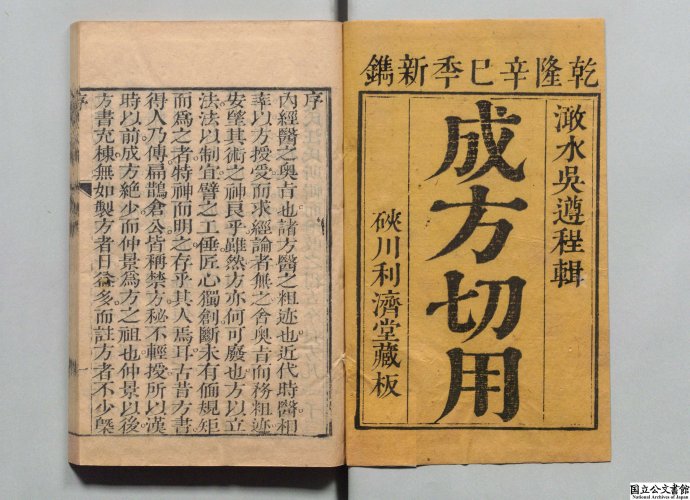 乾隆辛巳季新鐫
澉水吳遵程輯
成方切用
硤川利濟堂藏板
序
內經醫之奥旨也諸方醫之粗迹也近代時醫相
率以方授受而求經論者無之舍奥旨而務粗迹
安望其術之神良乎雖然方亦何可廢也方以立
法法以制宜譬之工倕匠心獨創斷未有偭規矩
而爲之者特神而明之存乎其人焉耳古昔方書
得人乃傳扁鵲倉公皆稱禁方秘不輕授所以漢
時以前成方絶少而仲景爲方之祖也仲景以後
方書充棟無如製方者日益多而註方者不少槩
序
国立公文書館
National Archives of Japan